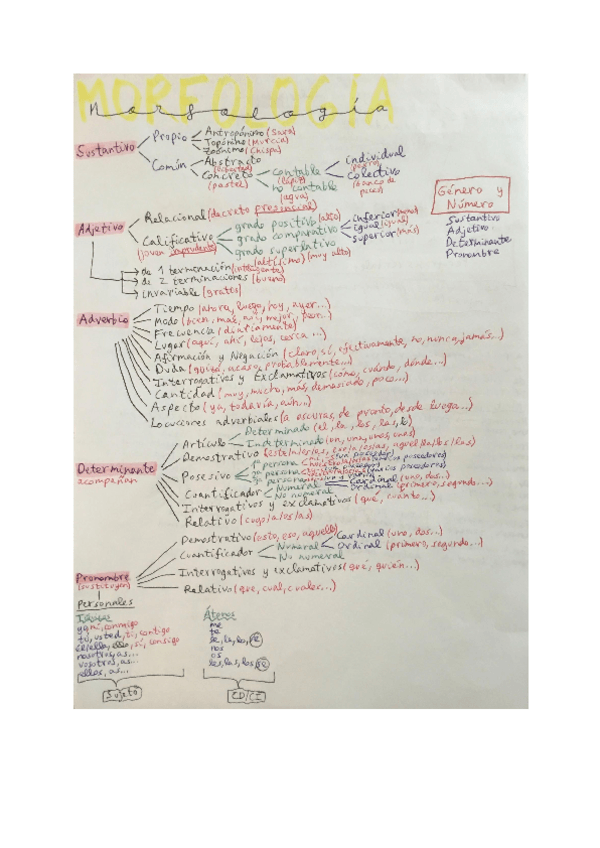 MORFOLOGÍA
Morfología
Sustantivo
Propio
Antropónimo (Sara)
Topónimo (Murcia)
Zoónimo (Chispa)
Común
Abstracto
(libertad)
Concreto
(pastel)
contable
(lápiz)
no contable
(agua)
individual
(perro)
colectivo
(banco de
peces)
Género y
Número
Sustantivo
Adjetivo
Determinante
Pronombre
Adjetivo
Relacional (decreto presidencial)
Calificativo
(joven imprudente)
grado positivo (alto)
grado comparativo
inferior (menos)
igual (igual)
superior (más)
grado superlativo
(altísimo) (muy alto)
de 1 terminación (inteligente)
de 2 terminaciones (bueno)
invariable (gratis)
Adverbio
Tiempo (ahora, luego, hoy, ayer...)
Modo (bien, mal, así, mejor, peor...)
Frecuencia (diariamente)
Lugar (aquí, ahí, lejos, cerca...)
Afirmación y Negación (claro, sí, efectivamente, no, nunca, jamás..)
Duda (quizá, acaso, probablemente...)
Interrogativos y Exclamativos (cómo, cuándo, dónde...)
Cantidad (muy, mucho, más, demasiado, poco...)
Aspecto (ya, todavía, aún...)
Locuciones adverbiales (a oscuras, de pronto, desde luego...)
Determinante
acompañan
Artículo
Determinado (el, la, los, las, lo)
Indeterminado (un, una, unos, unas)
Demostrativo (este/a/esos, ese/a/os/as, aquel/lla/llos/llas)
Posesivo
1ª persona
2ª persona
3ª persona
Cuantificador
Numeral
Cardinal (uno, dos...)
Ordinal (primero, segundo...)
No numeral
Interrogativos y exclamativos (qué, cuánto...)
Relativo (cuyo/a/os/as)
Pronombre
(sustituyen)
Demostrativo (esto, eso, aquello)
Cuantificador
Numeral
Cardinal (uno, dos...)
Ordinal (primero, segundo...)
No numeral
Interrogativos y exclamativos (qué, quién...)
Relativo (que, cual, cuales...)
Personales
Tónicos
yo, mí, conmigo
tú, usted, ti, contigo
él/ella, ello, sí, consigo
nosotros, as...
vosotros, as...
ellos, as...
Sujeto
Átonos
me
te
le, la, lo, se
nos
os
les, las, los, se
CD/CI